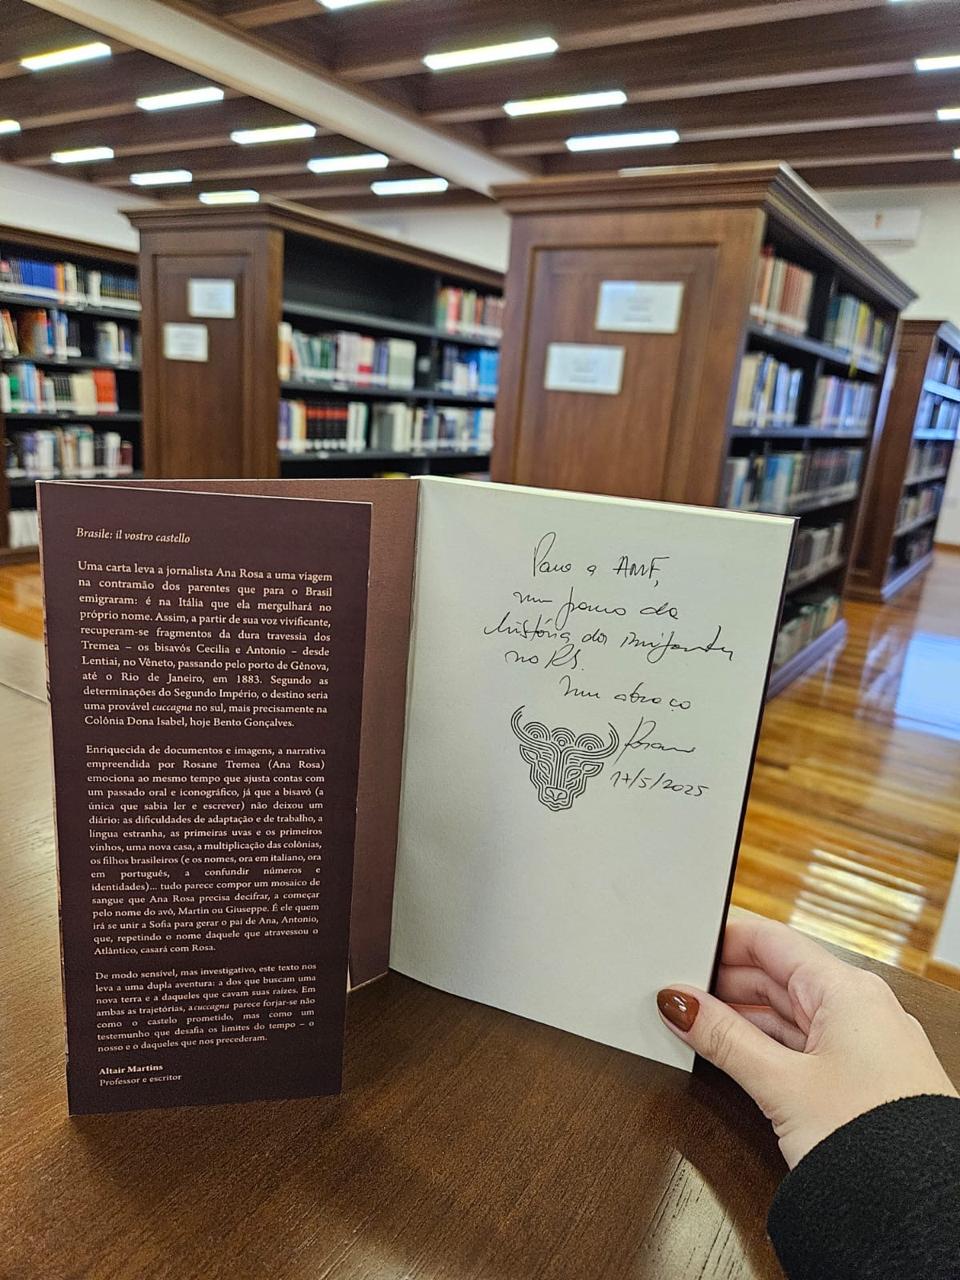 Brasile: il vostro castello
Uma carta leva a jornalista Ana Rosa a uma viagem
na contramão dos parentes que para o Brasil
emigraram: é na Itália que ela mergulhará no
próprio nome. Assim, a partir de sua voz vivificante,
recuperam-se fragmentos da dura travessia dos
Tremea – os bisavós Cecilia e Antonio – desde
Lentiai, no Vêneto, passando pelo porto de Gênova,
até o Rio de Janeiro, em 1883. Segundo as
determinações do Segundo Império, o destino seria
uma provável cuccagna no sul, mais precisamente na
Colônia Dona Isabel, hoje Bento Gonçalves.
Enriquecida de documentos e imagens, a narrativa
empreendida por Rosane Tremea (Ana Rosa)
emociona ao mesmo tempo que ajusta contas com
um passado oral e iconográfico, já que a bisavó (a
única que sabia ler e escrever) não deixou um
diário: as dificuldades de adaptação e de trabalho, a
língua estranha, as primeiras uvas e os primeiros
vinhos, uma nova casa, a multiplicação das colônias,
os filhos brasileiros (e os nomes, ora em italiano, ora
em português, a confundir números e
identidades)... tudo parece compor um mosaico de
sangue que Ana Rosa precisa decifrar, a começar
pelo nome do avô, Martin ou Giuseppe. É ele quem
irá se unir a Sofia para gerar o pai de Ana, Antonio,
que, repetindo o nome daquele que atravessou o
Atlântico, casará com Rosa.
De modo sensível, mas investigativo, este texto nos
leva a uma dupla aventura: a dos que buscam uma
nova terra e a daqueles que cavam suas raízes. Em
ambas as trajetórias, a cuccagna parece forjar-se não
como o castelo prometido, mas como um
testemunho que desafia os limites do tempo – o
nosso e o daqueles que nos precederam.
Altair Martins
Professor e escritor
Para a AMF,
um pouco da
história dos imigrantes
no RS.
Um abraço
Rosane
17/5/2025